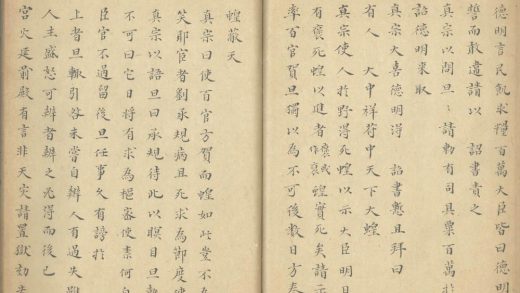 德明言民飢求糧百萬大臣皆曰德明
誓而敢違請以 詔書責之
真宗以問旦〻請勅有司具粟百萬於
詔德明來取
真宗大喜德明得 詔書慙且拜曰
省人 大中祥符中天下大蝗
真宗使人於野得死蝗以示大臣明日
有死蝗以進者 蝗實死矣請示
率百官賀旦獨以為不可後數日方奏
蝗蔽天
真宗曰使百官方賀而蝗如此豈不
笑耶宦者劉承規病且死求為節度
真宗以語旦曰承規待此以瞑目旦
不可曰它日將有求為樞密使柰何
臣官不過留後旦任事久有謗於
上者旦輒引咎未嘗自辨人有過失
人主盛怒可辨者辨之必得而後已
宮火延前殿有言非天灾請置獄劾